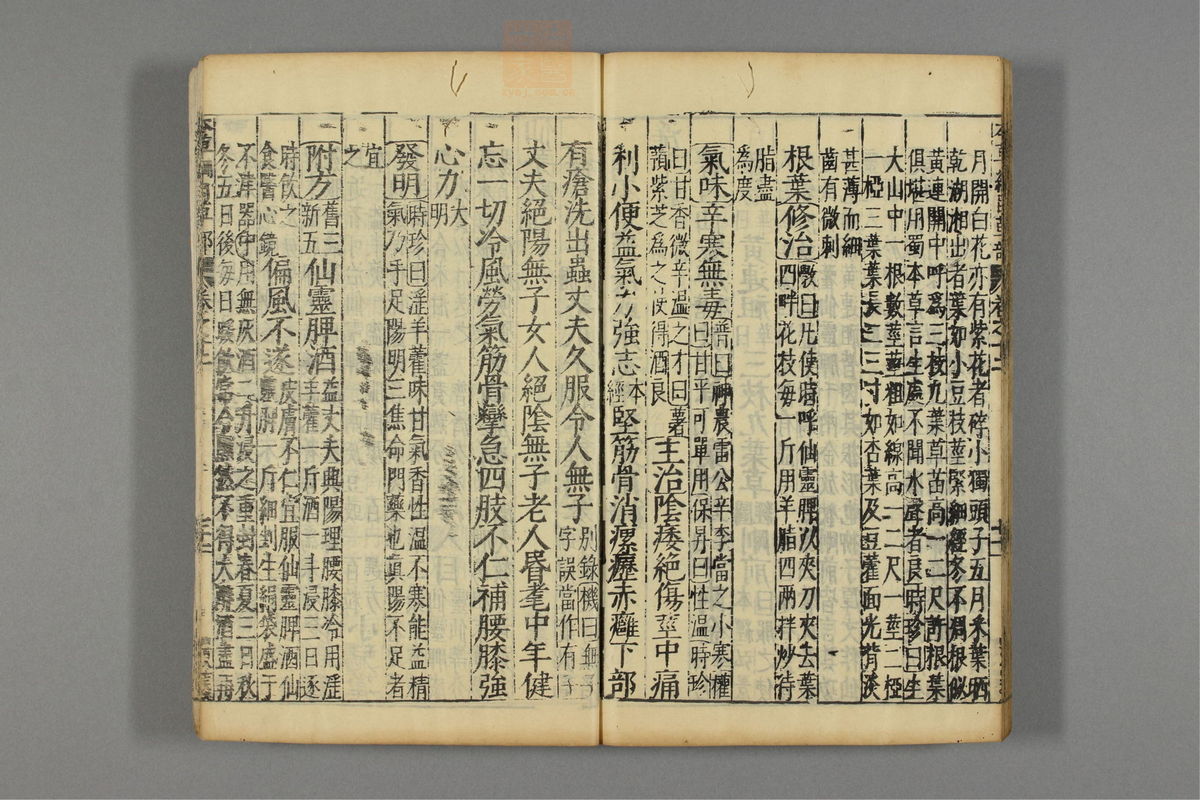 月開白花亦有紫花者碎小獨頭子五月采葉晒
乾湖湘出者葉如小豆枝莖緊細經冬不凋根似
黃連關中呼爲三枝九葉草苗高一二尺許根葉
俱堪用蜀本草言生處不聞水聲者良時珍曰生
大山中一根數莖莖粗如線高一二尺一莖二椏
一椏三葉葉長二三寸如杏葉及豆藿面光背淡
甚薄而細
齒有微刺
根葉修治斆曰凡使時呼仙靈脾次夾刀夾去葉
四畔花枝每一斤用羊脂四兩拌炒待
脂盡
爲度
氣味辛寒無毒普曰神農雷公辛李當之小寒權
曰甘平可單用保昇曰性溫時珍
曰甘香微辛溫之才曰薯
蕷紫芝爲之使得酒良
主治陰痿絕傷莖中痛
利小便益氣力強志本
經堅筋骨消瘰癧赤癰下部
有瘡洗出蟲丈夫久服令人無子別錄機曰無子
字誤當作有子
丈夫絕陽無子女人絕陰無子老人昏耄中年健
忘一切冷風勞氣筋骨攣急四肢不仁補腰膝強
心力大
明
發明時珍曰淫羊藿味甘氣香性溫不寒能益精
氣乃手足陽明三焦命門藥也真陽不足者
宜
之
附方舊三
新五仙靈脾酒益丈夫興陽理腰膝冷用淫
羊藿一斤酒一斗浸三日逐
時飲之
食醫心鏡偏風不遂皮膚不仁宜服仙靈脾酒仙
靈脾一斤細剉生絹袋盛于
不津器中用無灰酒二斗浸之重封春夏三日秋
冬五日後每日暖飲常令醺然不得大醉酒盡再